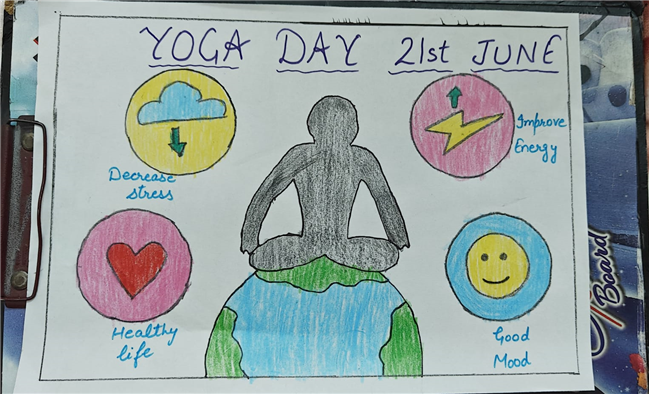 YOGA DAY 21st JUNE
Decrease
stress
Improve
Energy
Healthy
life
Good
Mood
Board